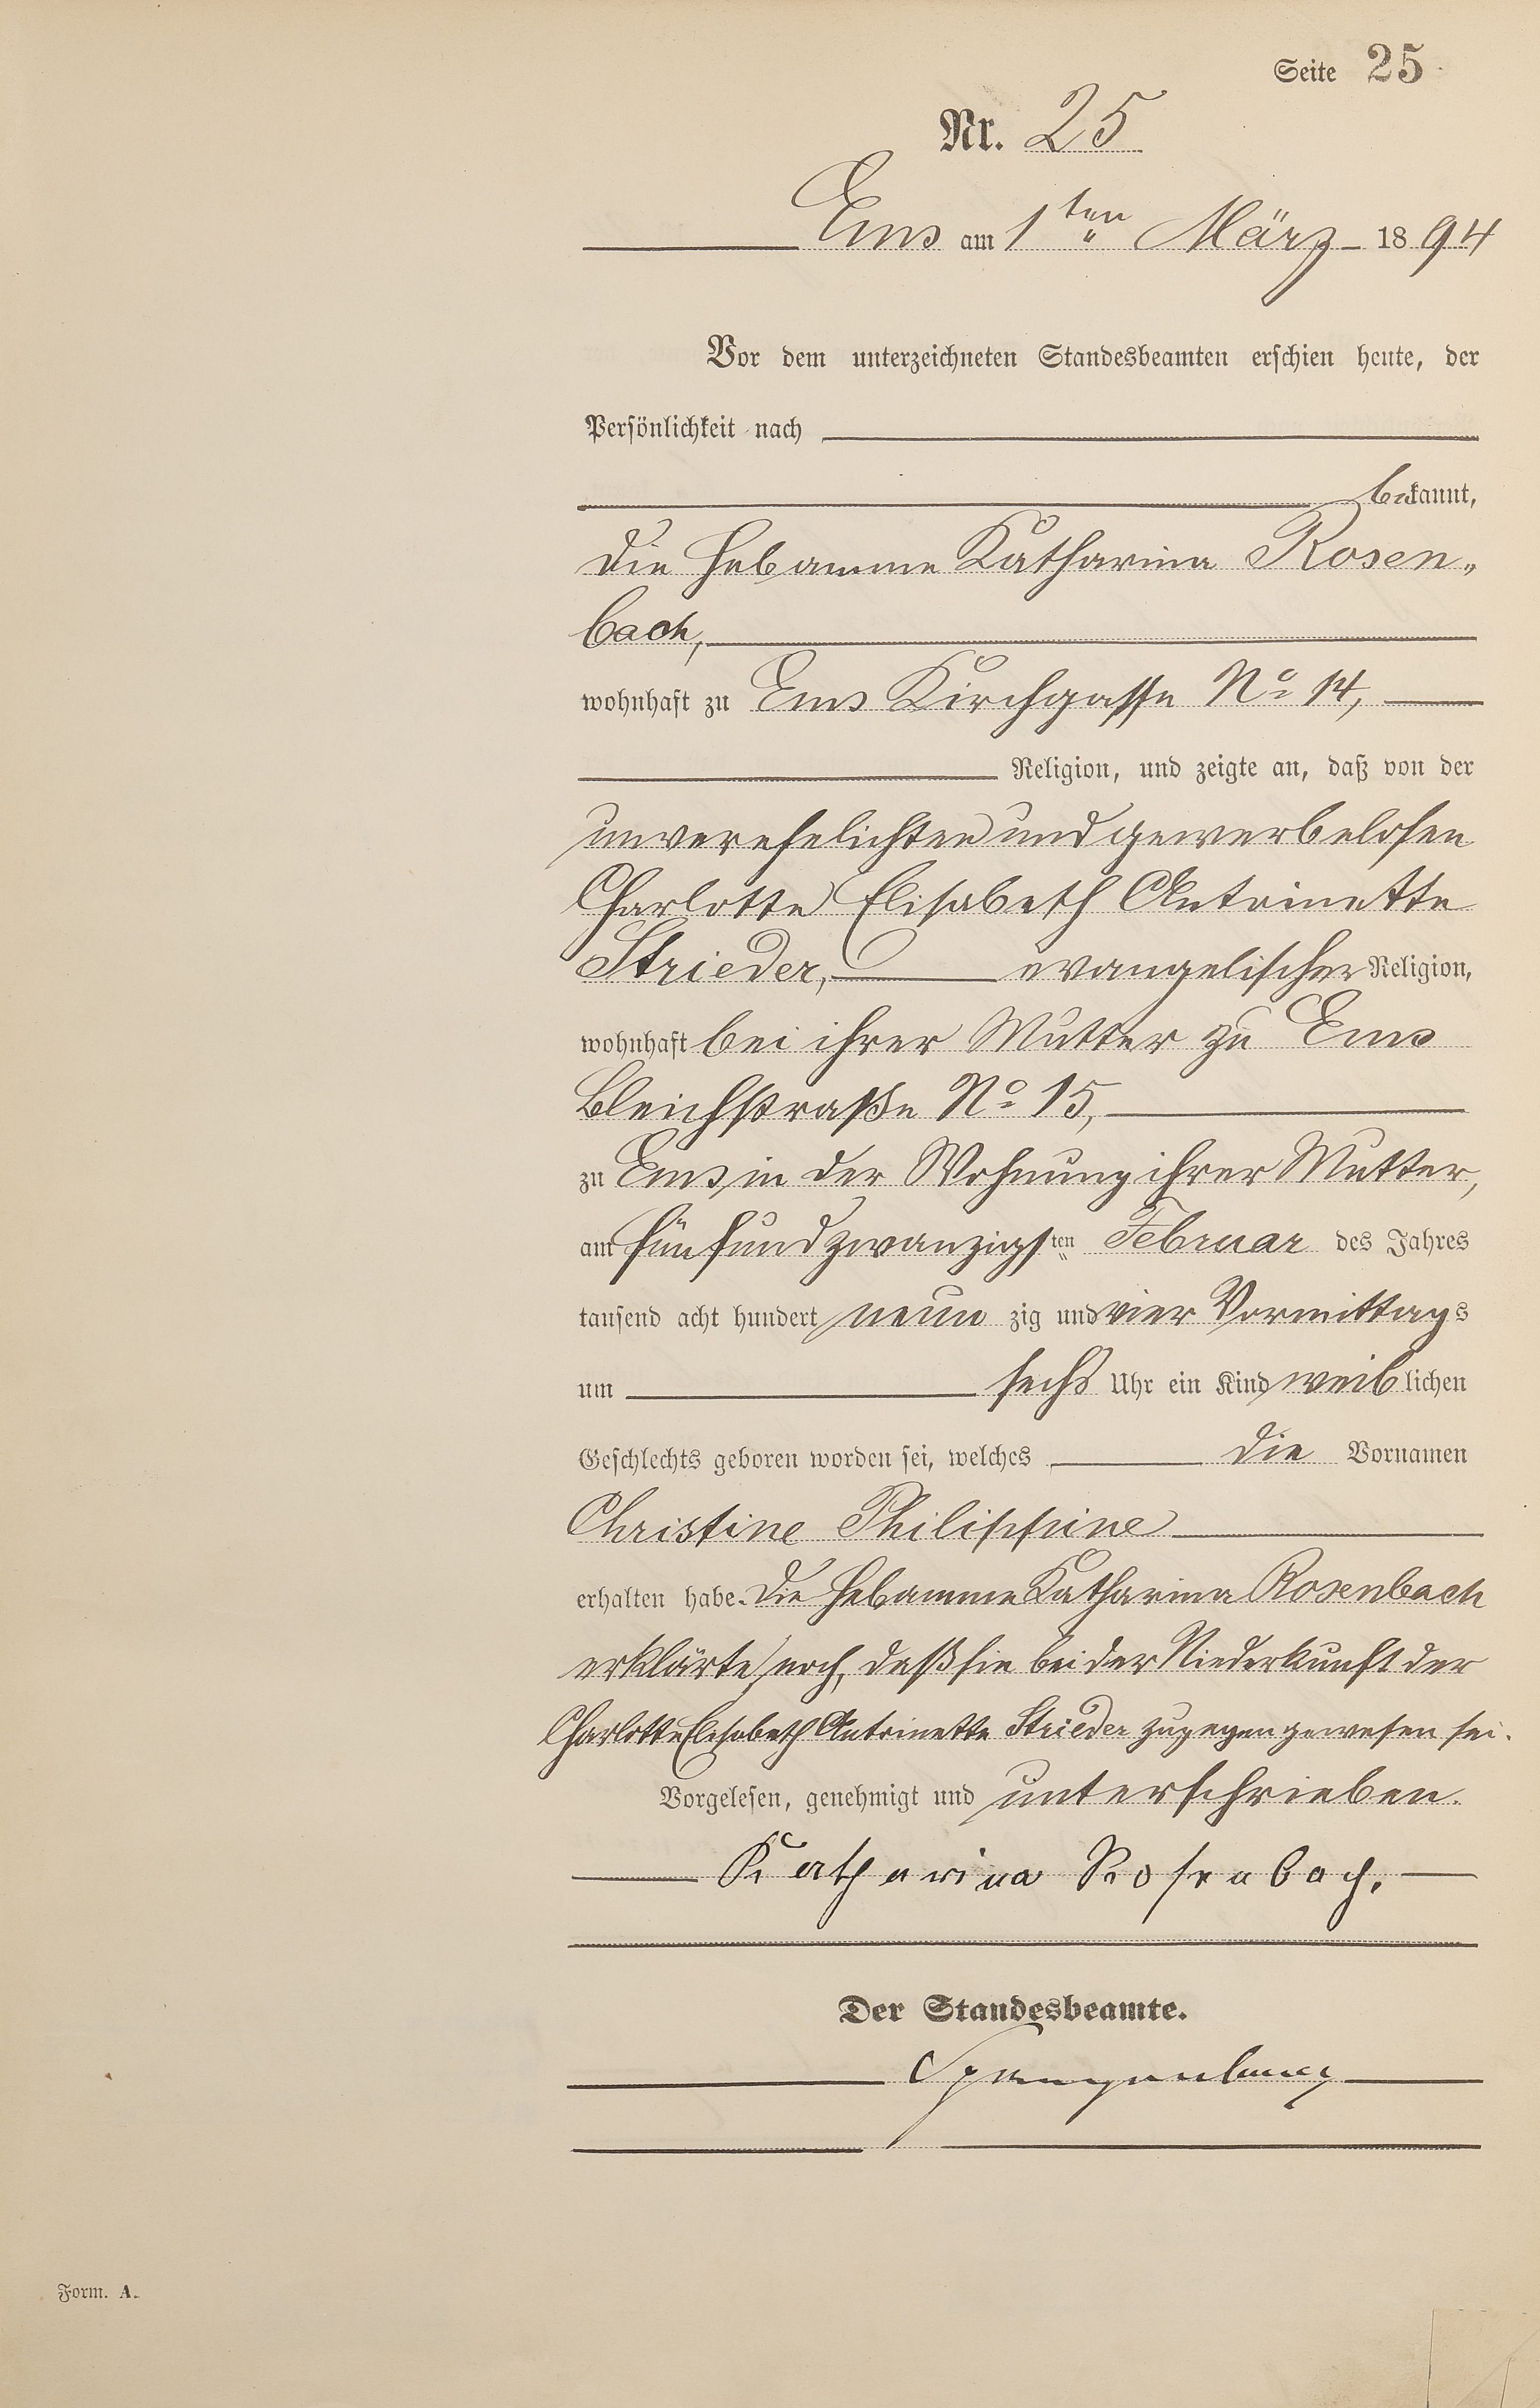 Seite 25
Nr. 25
Ems am 1ten März 1894
Vor dem unterzeichneten Standesbeamten erschien heute, der
Persönlichkeit nach
bekannt,
die Hebamme Katharina Rosen„
bach,
wohnhaft zu Ems Kirchgasse No 14,
Religion, und zeigte an, daß von der
unverehelichten und gewerbelosen
Charlotte Elisabeth Antoinette
Strieder, evangelischer Religion,
wohnhaft bei ihrer Mutter zu Ems
Bleichstraße No 15,
zu Ems, in der Wohnung ihrer Mutter,
am fünfundzwanzigsten Februar des Jahres
tausend acht hundert neun zig und vier Vormittags
um sechs Uhr ein Kind weiblichen
Geschlechts geboren worden sei, welches die Vornamen
Christine Philippine
erhalten habe. Die Hebamme Katharina Rosenbach
erklärte noch, daß sie bei der Niederkunft der
Charlotte Elisabeth Antoinette Strieder zugegen gewesen sei.
Vorgelesen, genehmigt und unterschrieben.
Katharina Rosenbach.
Der Standesbeamte.
Spangenberg
Form. A.